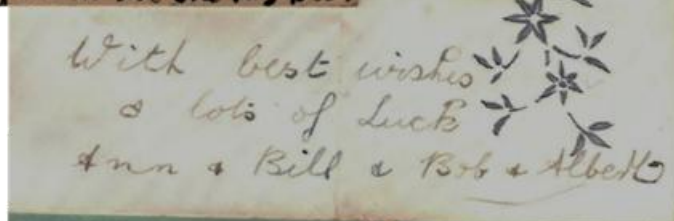 With best wishes
& lots of Luck
Ann & Bill & Bob & Albert